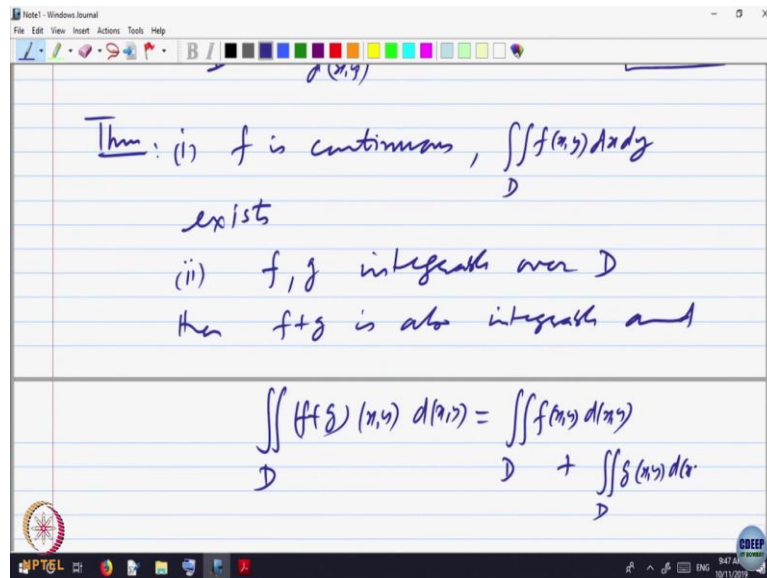 Note1 - Windows Journal
File Edit View Insert Actions Tools Help
B I
d(x,y)
Thm: (i) f is continuous, ∬f(x,y)dxdy
D
exists
(ii) f, g integrable over D
then f+g is also integrable and
∬(f+g)(x,y) d(x,y) = ∬f(x,y) d(x,y)
D D
+ ∬g(x,y)d(x
D
NPTEL
CDEEP
IIT BOMBAY
ENG
9:47 A
10/11/2019